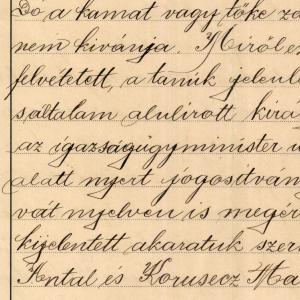 Dó a kamat vagy tőke zá
nem kivánja. Miről e
felvétetett, a tanúk jelenl
s általam alulirott kira
az igazságügyminister u
alatt nyert jogositván
vát nyelven is megér
kijelentett akaratuk szer
Antal és Korusecz Ma